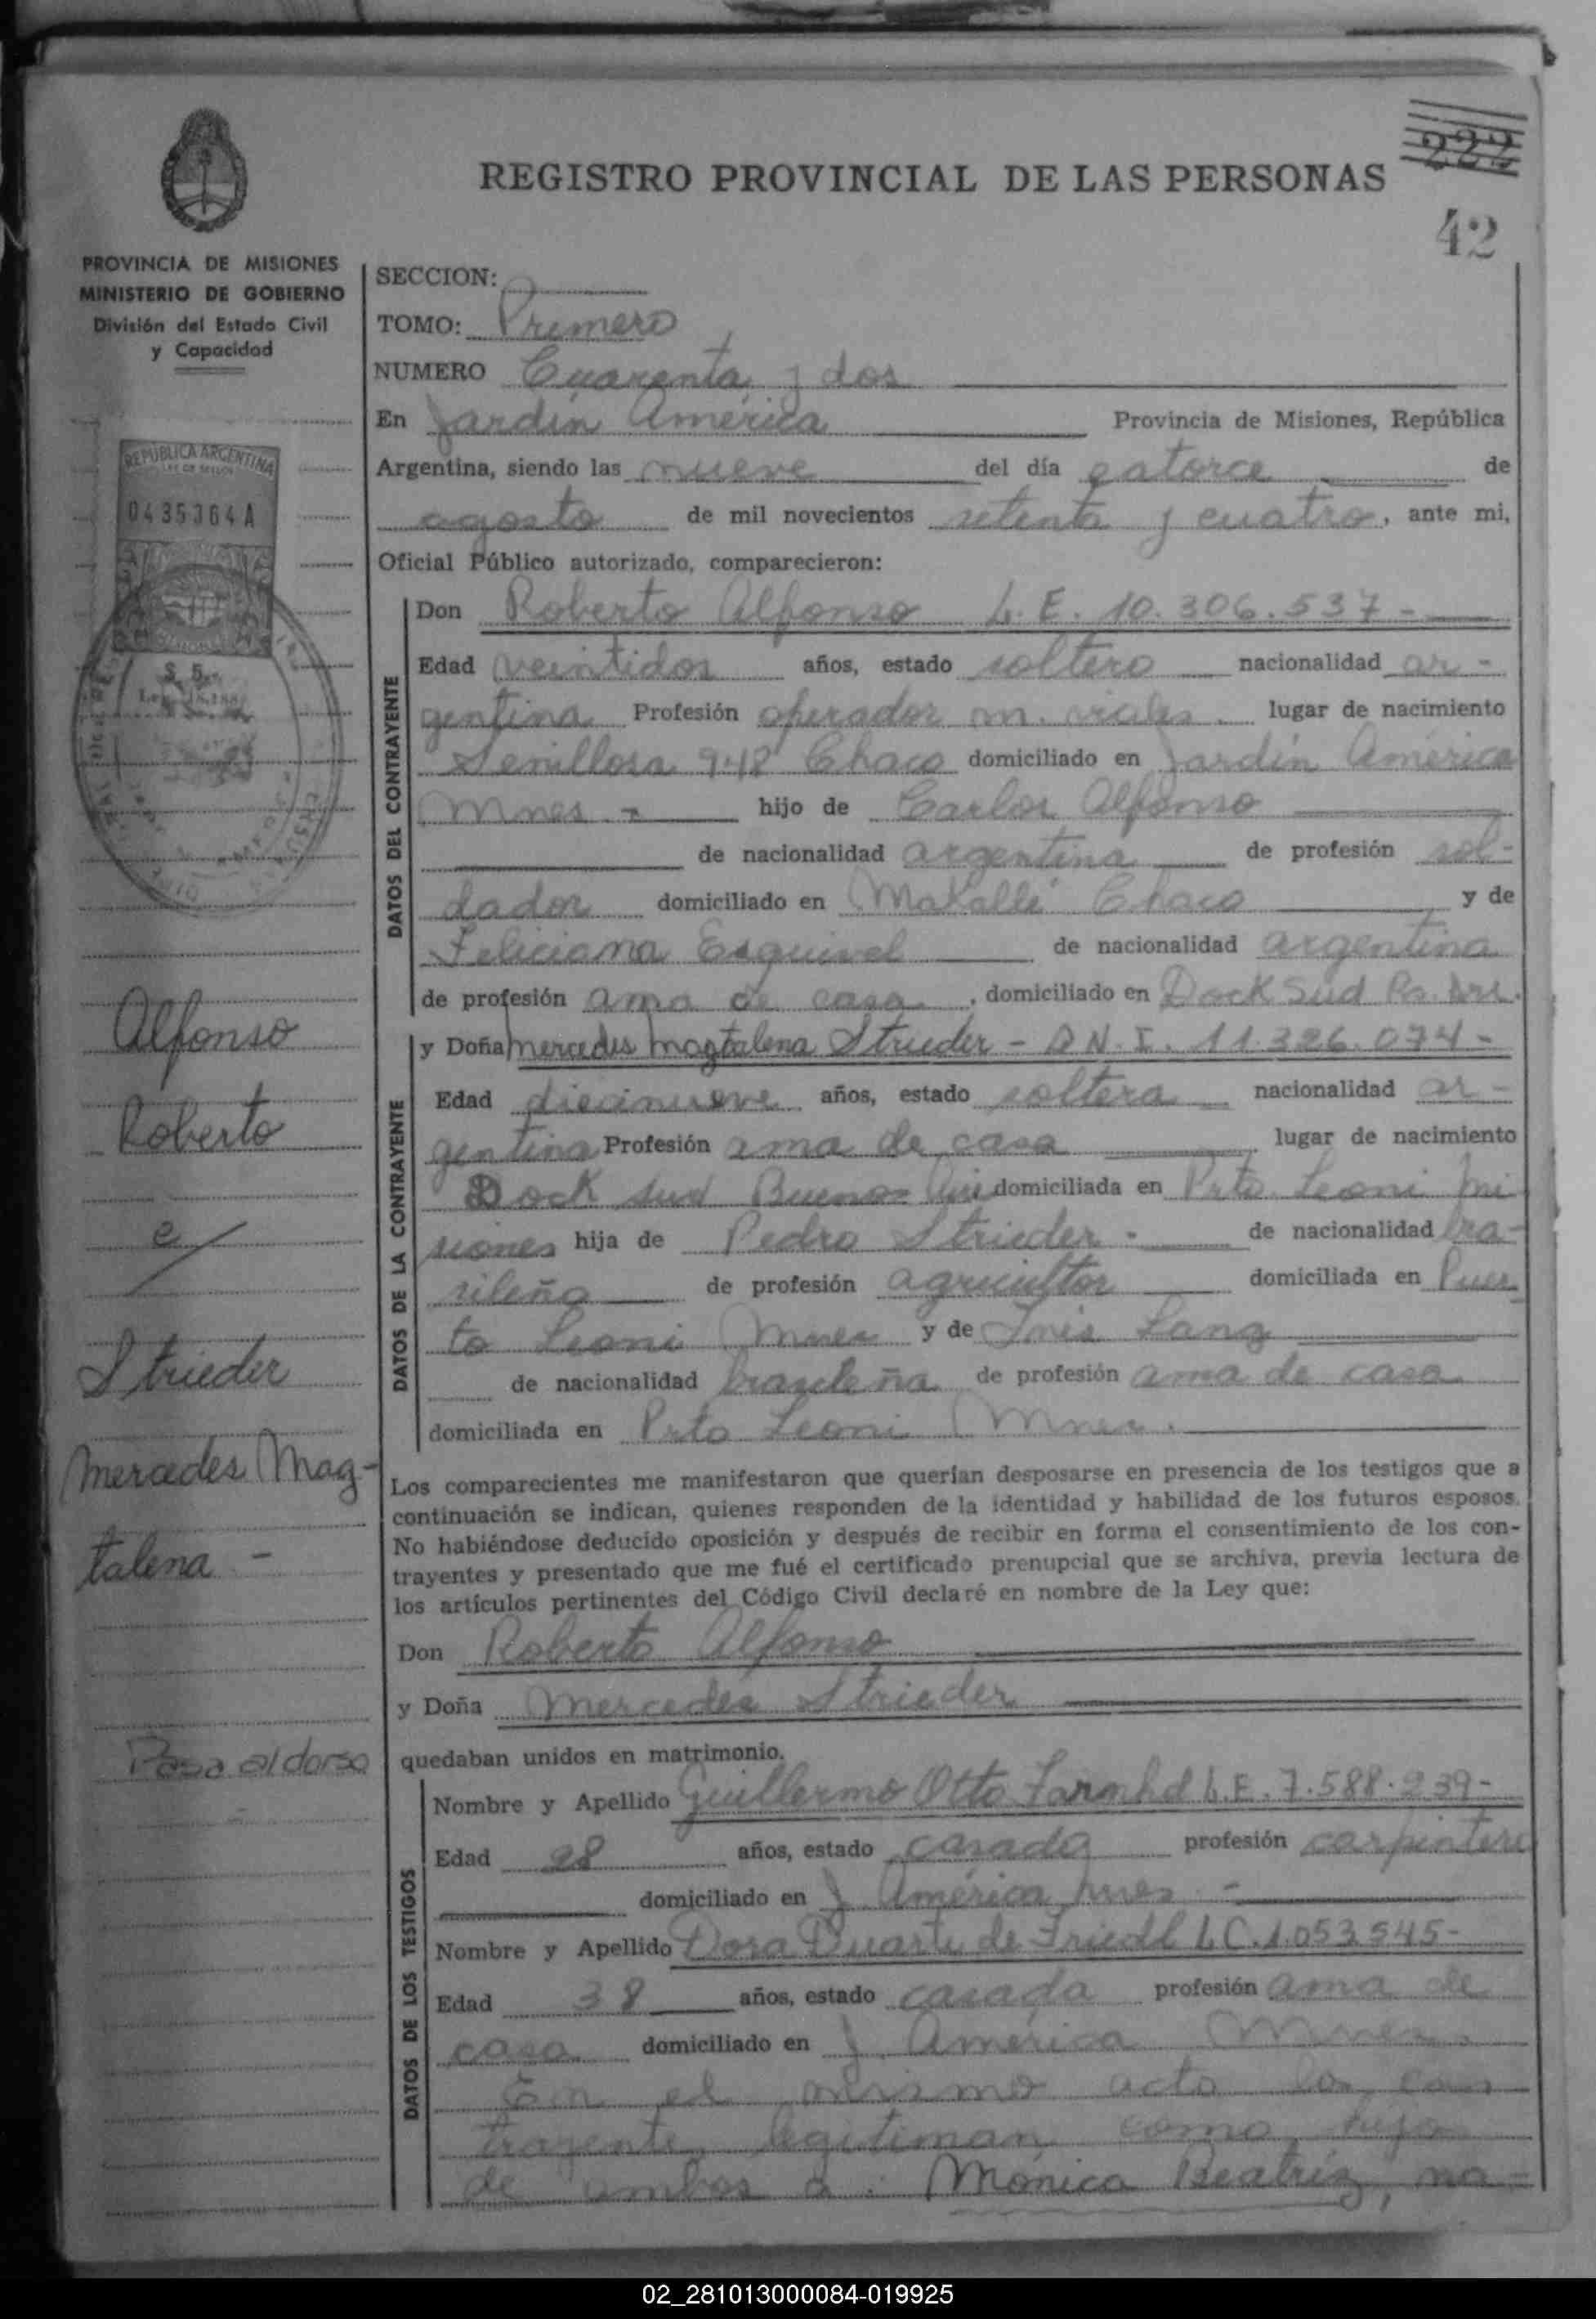 222
REGISTRO PROVINCIAL DE LAS PERSONAS
42
PROVINCIA DE MISIONES
MINISTERIO DE GOBIERNO
División del Estado Civil
y Capacidad
REPUBLICA ARGENTINA
0435364 A
$ 5
SECCION:
TOMO: Primero
NUMERO Cuarenta y dos
En Jardín América Provincia de Misiones, República
Argentina, siendo las nueve del día catorce de
agosto de mil novecientos setenta y cuatro, ante mi,
Oficial Público autorizado, comparecieron:
DATOS DEL CONTRAYENTE
Don Roberto Alfonso L. E. 10.306.537-
Edad veintidos años, estado soltero nacionalidad ar-
gentina Profesión operador m. viales. lugar de nacimiento
Senillosa 948 Chaco domiciliado en Jardín América
Mnes - hijo de Carlos Alfonso
de nacionalidad argentina de profesión sol-
dador domiciliado en Makallé Chaco y de
Feliciana Esquivel de nacionalidad argentina
de profesión ama de casa, domiciliado en Dock Sud Bs. Ars.
DATOS DE LA CONTRAYENTE
y Doña Mercedes Magtalena Strieder - D N. I. 11.326.074-
Edad diecinueve años, estado soltera nacionalidad ar-
gentina Profesión ama de casa lugar de nacimiento
Dock sud Buenos Aire domiciliada en Prto Leoni Mi
siones hija de Pedro Strieder - de nacionalidad bra-
sileña de profesión agricultor domiciliada en Puer
to Leoni Mnes y de Inés Lang
de nacionalidad brasileña de profesión ama de casa
domiciliada en Prto Leoni Mnes.
Los comparecientes me manifestaron que querían desposarse en presencia de los testigos que a
continuación se indican, quienes responden de la identidad y habilidad de los futuros esposos.
No habiéndose deducido oposición y después de recibir en forma el consentimiento de los con-
trayentes y presentado que me fué el certificado prenupcial que se archiva, previa lectura de
los artículos pertinentes del Código Civil declaré en nombre de la Ley que:
Don Roberto Alfonso
y Doña Mercedes Strieder
quedaban unidos en matrimonio.
DATOS DE LOS TESTIGOS
Nombre y Apellido Guillermo Otto L.E. 7.588.239-
Edad 28 años, estado casado profesión carpintero
domiciliado en J América Mnes -
Nombre y Apellido Dora Duarte de Friedl L C. 1.053.545-
Edad 38 años, estado casada profesión ama de
casa domiciliado en J. América Mnes.
En el mismo acto los con
trayente legitiman como hijo
de ambos a: Mónica Beatríz, na-
Alfonso
Roberto
e/
Strieder
Mercedes Mag-
talena -
Pasa al dorso
02_281013000084-019925